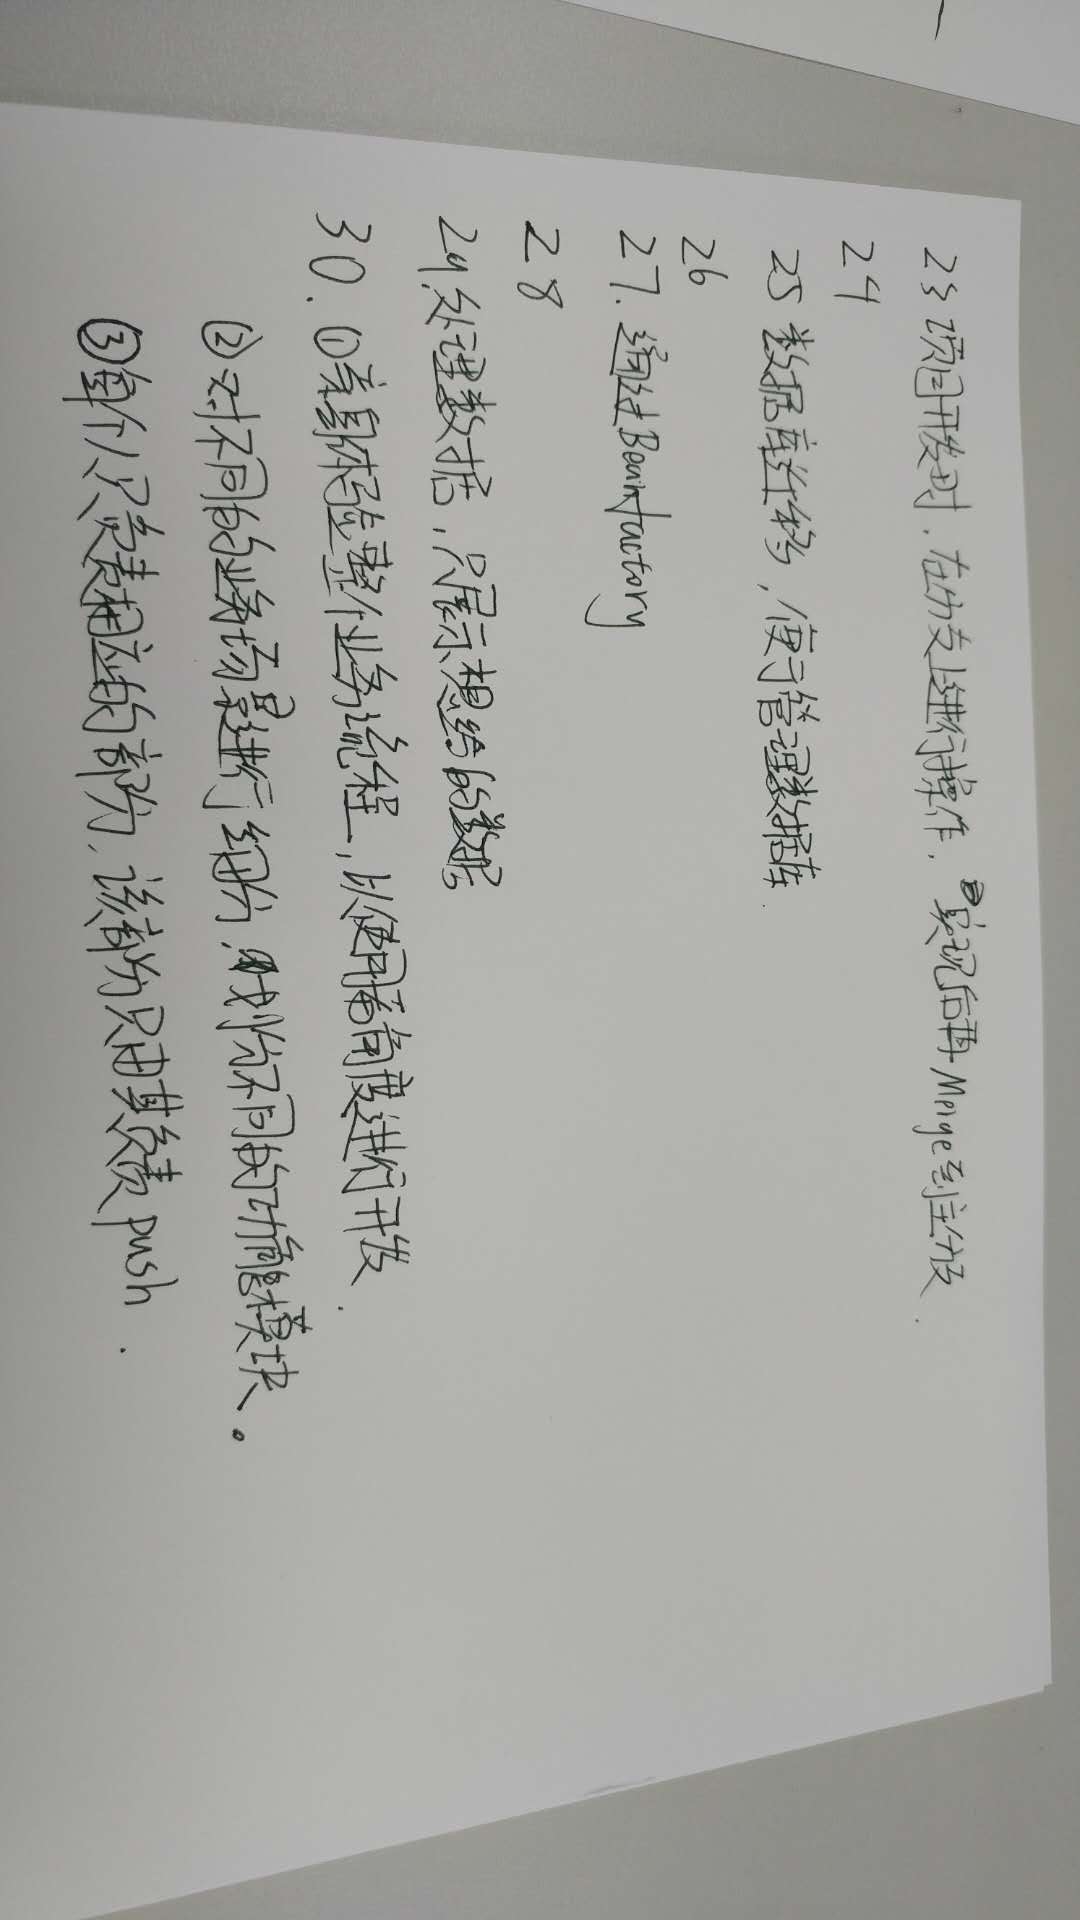 23 项目开发时，在分支上进行操作，实现后再Merge到主分支.
24
25 数据库迁移，便于管理数据库.
26
27. 通过Beanfactory
28
29. 处理数据，只展示想给的数据
30. ①亲身体验整个业务流程，以使用者角度进行开发.
②对不同的业务场景进行细分，划分不同的功能模块。
③每个人只负责相应的部分，该部分只由其负责push.